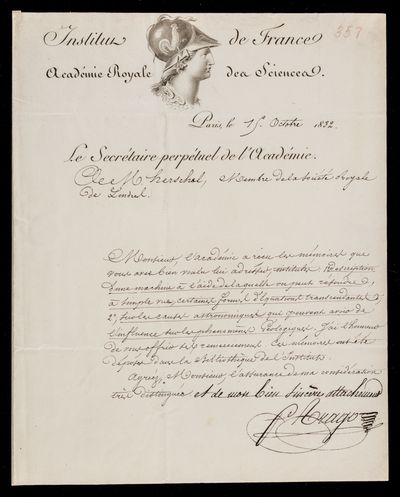 Institut de France
337
Académie Royale des Sciences.
Paris, le 15 Octobre 1832.
Le Secrétaire perpétuel de l'Académie.
à M. herschel, Membre de la Société Royale
de Londres.
Monsieur, l'académie a reçu les mémoires que
vous avez bien voulu lui adresser, intitulés Description
d'une machine à l'aide de laquelle on peut résoudre,
à simple vue, certaines formes d'équations transcendantes;
2° sur les causes astronomiques qui peuvent avoir de
l'influence sur les phénomènes Géologiques. J'ai l'honneur
de vous offrir ses remerciements. Ces mémoires ont été
déposés dans la Bibliothèque de l'Institut.
Agréez, Monsieur, l'assurance de ma considération
très distinguée et de mon bien sincère attachement
F. Arago